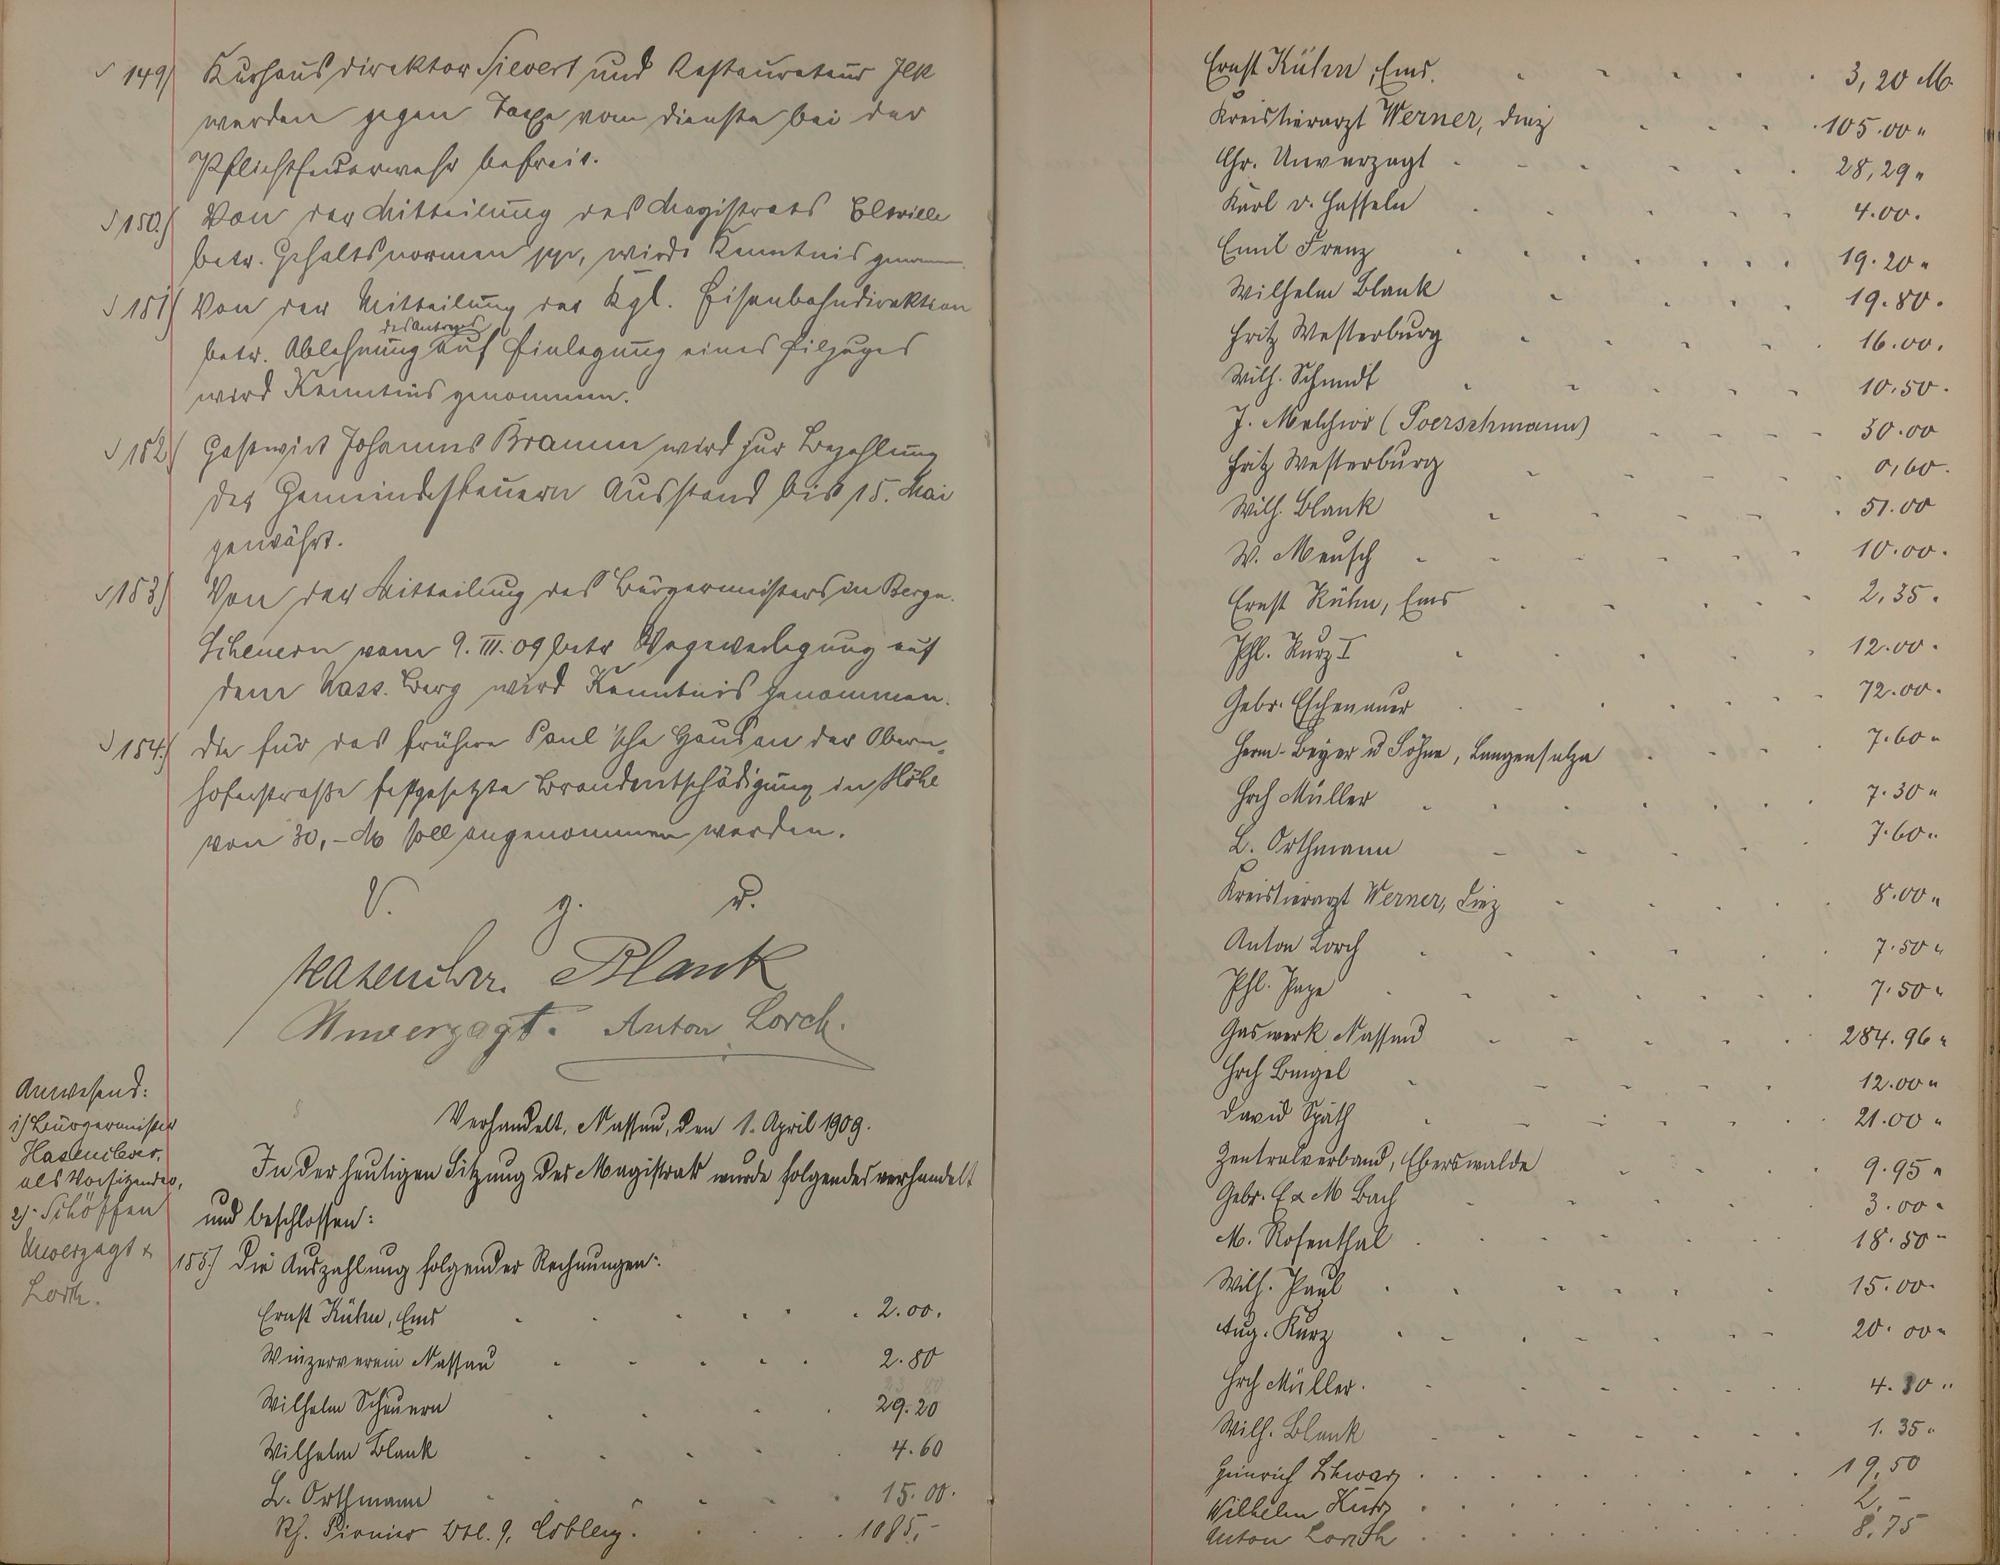 149) Kurhausdirektor Sievert und Restaurateur Ilk
werden gegen Taxe vom Dienste bei der
Pflichtfeuerwehr befreit.
150.) Von der Mitteilung des Magistrats Eltville
betr. Gehaltsnormen pp, wird Kenntnis genommen.
151) Von der Mitteilung der Kgl. Eisenbahndirektion
des Antrages
betr. Ablehnung auf Einlegung eines Eilzuges
wird Kenntnis genommen.
152) Gastwirt Johannes Bramm wird zur Bezahlung
der Gemeindesteuern Ausstand bis 15. Mai
gewährt.
153) Von der Mitteilung des Bürgermeisters in Bergn.
Scheuern vom 9. III. 09 betr Wegeverlegung auf
dem Nass. Berg wird Kenntnis genommen.
154.) Die für das frühere Paul'sche Haus an der Obern-
hoferstraße festgesetzte Brandentschädigung in Höhe
von 30,- M soll angenommen werden.
V. g. u.
Hasenclever. Blank
Unverzagt. Anton Lorch.
Anwesend:
1) Bürgermeister
Hasenclever,
als Vorsitzender,
2). Schöffen
Unverzagt &
Lorch.
Verhandelt, Nassau, den 1. April 1909.
In der heutigen Sitzung des Magistrats wurde folgendes verhandelt
und beschlossen:
155.) Die Auszahlung folgender Rechnungen:
Ernst Kühn, Ems 2.00.
Winzerverein Nassau 2.80
Wilhelm Scheuern 29.20
Wilhelm Blank 4.60
L. Orthmann 15.00.
Rh. Pionier Btl. 9, Coblenz. 1085,-
Ernst Kühn, Ems. 3,20 M.
Kreistierarzt Werner, Diez 105.00 "
Chr. Unverzagt 28,29 "
Karl v. Hasseln 4.00.
Emil Frenz 19.20 "
Wilhelm Blank 19.80.
Fritz Westerburg 16.00.
Wilh. Schmidt 10.50.
J. Melchior (Poerschmann) 30.00
Fritz Westerburg 0,60.
Wilh. Blank 51.00
W. Meusch 10.00.
Ernst Kühn, Ems 2,35.
Phl. Kurz I 12.00.
Gebr. Eschenauer 72.00.
Herm. Beyer u Söhne, Langensalza 7.60 "
Hrch Müller 7.30 "
L. Orthmann 7.60 "
Kreistierarzt Werner, Diez 8.00 "
Anton Lorch 7.50 "
Phl. Page 7.50 "
Gaswerk Nassau 284.96 "
Hrch Bingel 12.00 "
David Späth 21.00 "
Zentralverband, Eberswalde 9.95 "
Gebr. E & M Bach 3.00 "
M. Rosenthal 18.50 "
Wilh. Paul 15.00.
Aug. Kurz 20.00 "
Hrch Müller. 4.30 "
Wilh. Blank 1.35 "
Heinrich Schwarz 19,50
Wilhelm Kurz 2,-
Anton Lorch 8,75